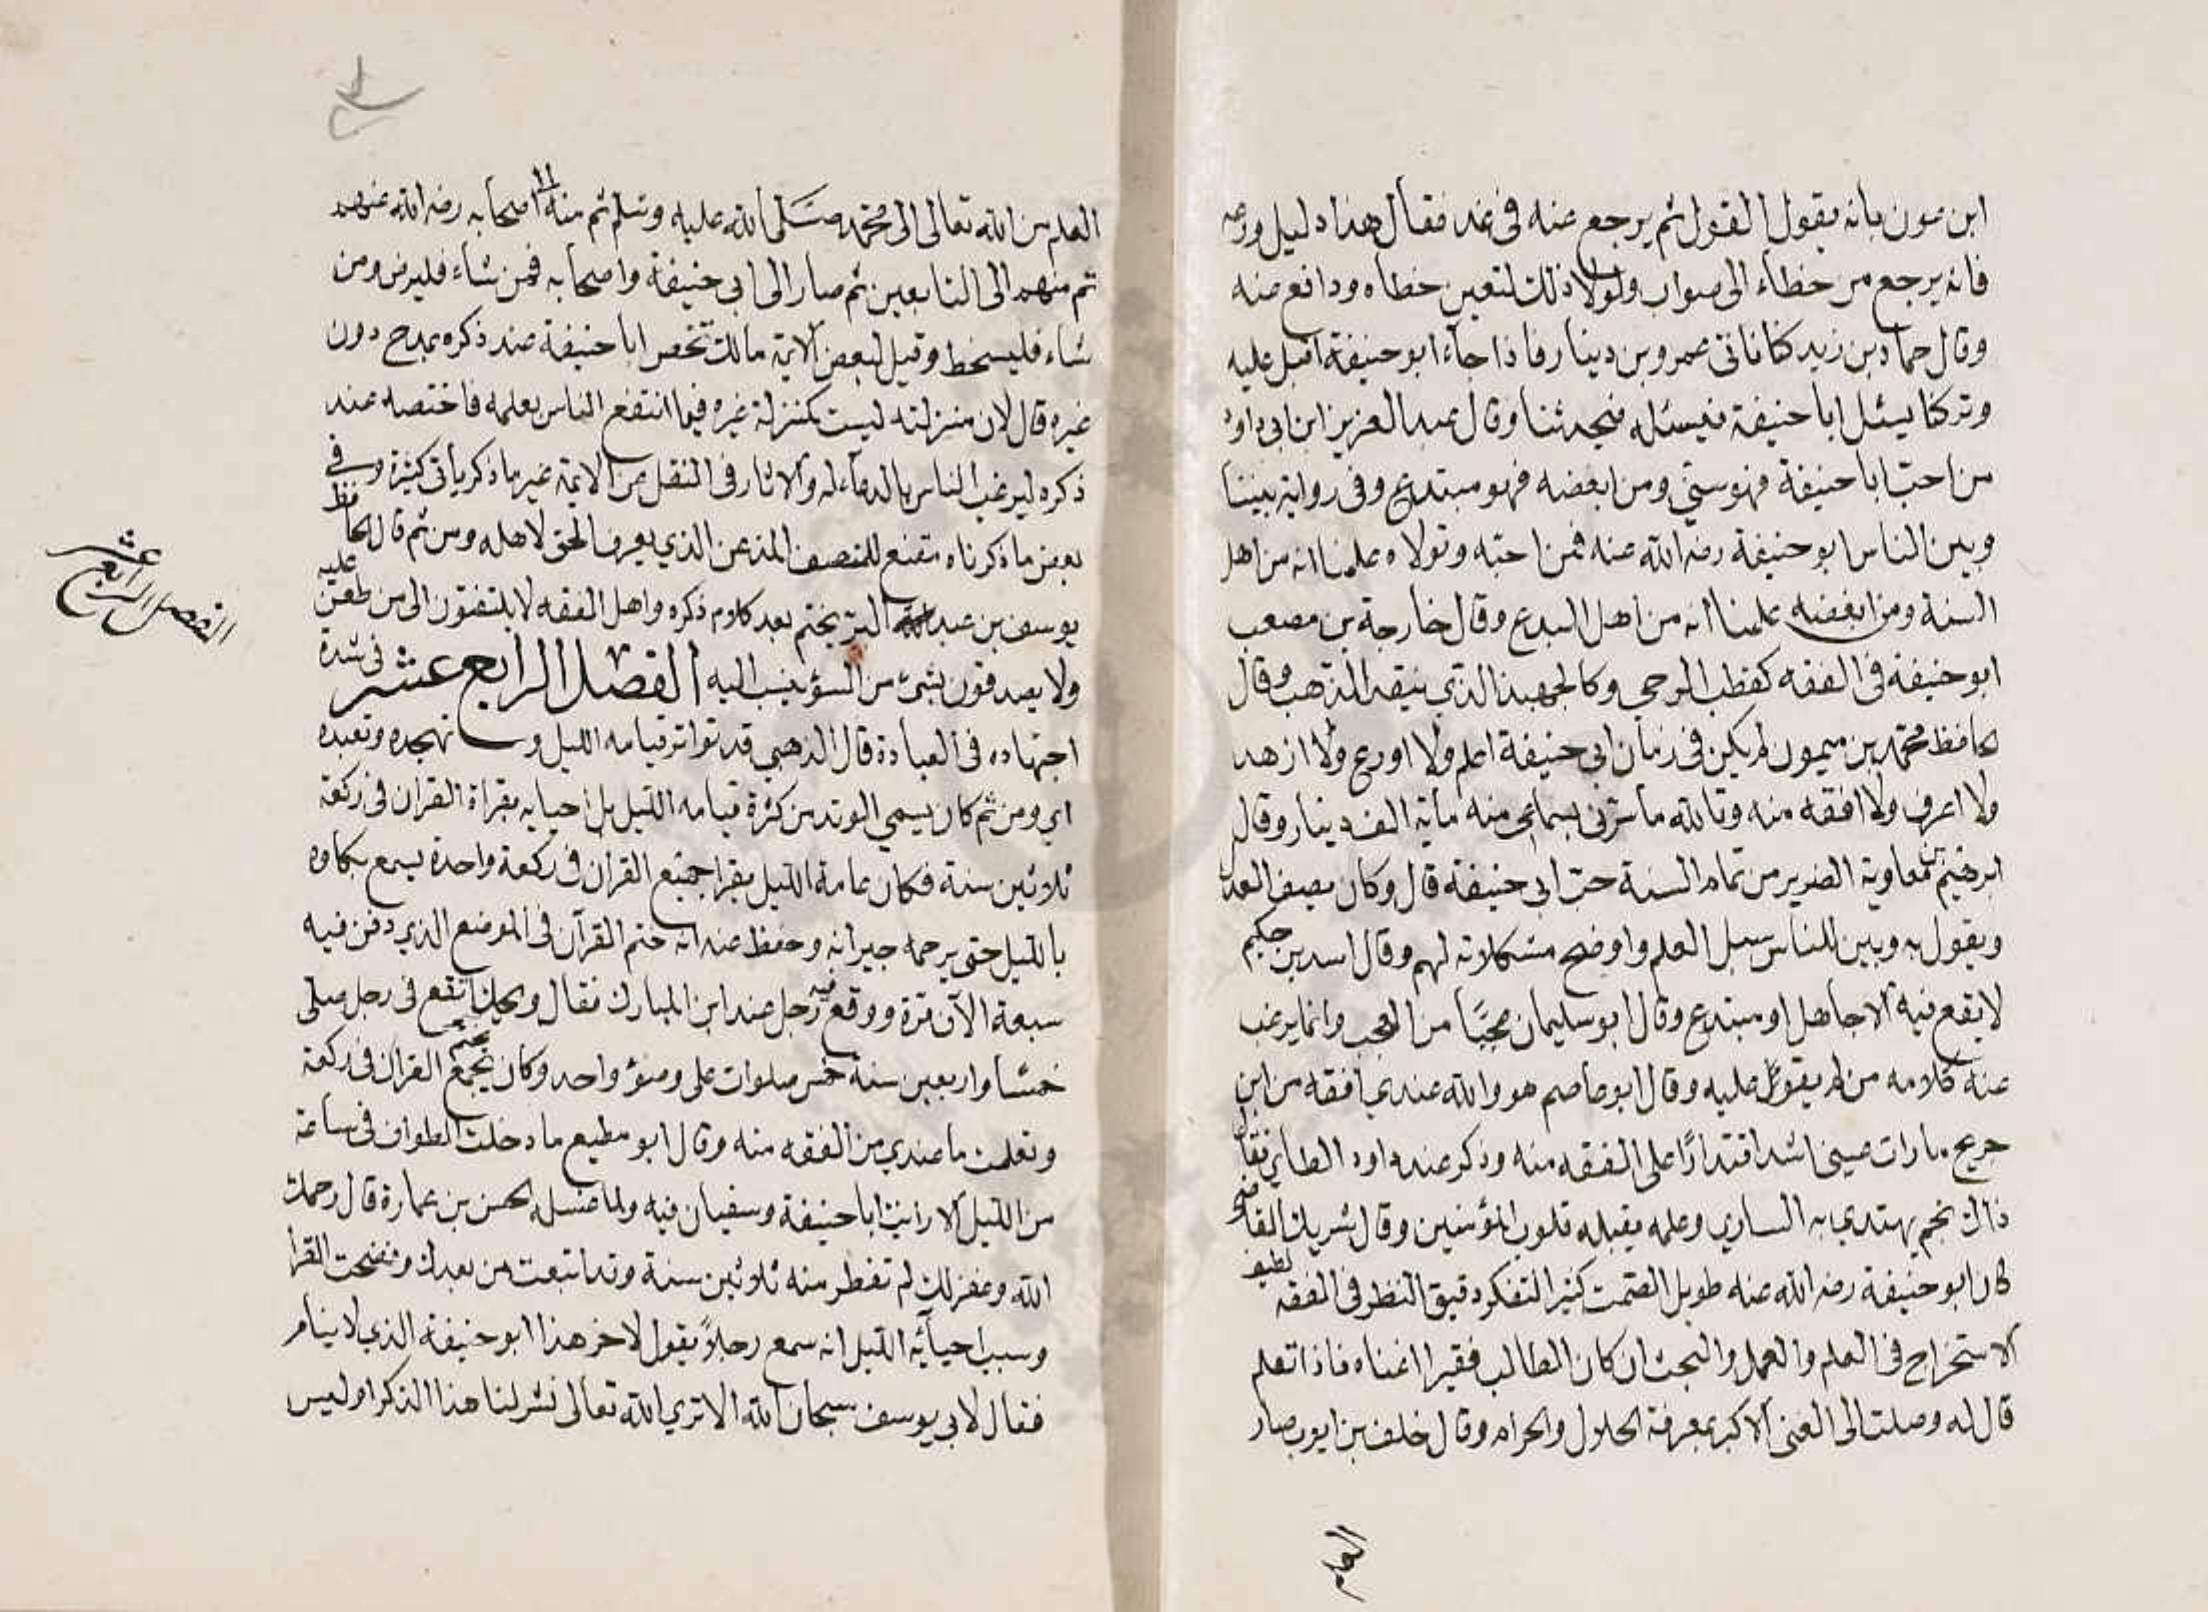 ابن عون بانه يقول القول ثم يرجع عنه في غد فقال هذا دليل ورعه
فانه يرجع من خطاء الى صواب ولولا ذلك لتعين خطاه ودافع عنه
وقال حماد بن زيد كنا ناتي عمرو بن دينار فاذا جاء ابو حنيفة اقبل عليه
وتركنا يسئل ابا حنيفة فيسئله فيحدثنا وقال عبد العزيز ابن ابي داود
من احبّ ابا حنيفة فهو سنّي ومن ابغضه فهو مبتدع وفي رواية بيننا
وبين الناس ابو حنيفة رضه الله عنه فمن احبّه وتولاه علمنا انه من اهل
السنة ومن ابغضه علمنا انه من اهل البدع وقال خارجة بن مصعب
ابو حنيفة في الفقه كقطب الرحي وكالجهبذ الذي ينقد الذهب وقال
لحافظ محمد بن ميمون لم يكن في زمان ابي حنيفة اعلم ولا اورع ولا ازهد
ولا اعرف ولا افقه منه وتالله ما سرّني بسماعي منه ماية الف دينار وقال
ابرهيم بن معاوية الضرير من تمام السنة حبّ ابي حنيفة قال وكان يصف العدل
ويقول به وبين للناس سبل العلم واوضح مشكلاته لهم وقال اسد بن حكيم
لا يقع فيه الا جاهل او مبتدع وقال ابو سليمان عجبًا من العجب وانما يرغب
عنه كلامه من لم يقو عليه وقال ابو عاصم هو والله عندي افقه من ابن
جريج ما رات عيني اشد اقتدارًا على الفقه منه وذكر عند داود الطاي فقال
ذاك نجم يهتدي به الساري وعلمه يقبله قلوب المؤمنين وقال شريك القاضي
كان ابو حنيفة رضه الله عنه طويل الصّمت كثير التفكر دقيق النظر في الفقه لطيف
الاستخراج في العلم والعمل والبحث ان كان الطالب فقيرا اغناه فاذا تعلم
قال له وصلت الى الغنى الاكبر بمعرفة الحلال والحرام وقال خلف بن ايوب صار
العلم
العلم من الله تعالى الى محمد صلى الله عليه وسلم ثم منه الى اصحابه رضه الله عنهم
ثم منهم الى التابعين ثم صار الى ابي حنيفة واصحابه فمن شاء فليرض ومن
شاء فليسخط وقيل لبعض الايمة مالك تخص ابا حنيفة عند ذكره بمدح دون
غيره قال لان منزلته ليست كمنزلة غيره فيما انتفع الناس بعلمه فاختصه عند
ذكره ليرغب الناس بالدعاء له والاثار في النقل عن الايمة غير ما ذكر يأتي كثيرة وفي
بعض ما ذكرناه مقنع للمنصف المذعن الذي يعرف الحق لاهله ومن ثم قال الحافظ
يوسف بن عبد البرّ يختم بعد كلام ذكره واهل الفقه لا يلتفتون الى من طعن عليه
ولا يصدقون بشئ من السؤ ينسب اليه الفصل الرابع عشر في شدة
اجتهاده في العبادة قال الذهبي قد تواتر قيامه الليل وتهجده وتعبده
اي ومن ثم كان يسمي الوتد من كثرة قيامه الليل بل احيايه بقراة القران في ركعة
ثلاثين سنة فكان عامة الليل يقرا جميع القران في ركعة واحدة يسمع بكاوه
بالليل حتى يرحمه جيرانه وحفظ عنه انه ختم القرآن في الموضع الذي دفن فيه
سبعة الآن مرّة ووقع فيه رجل عند ابن المبارك فقال ويحك اتقع في رجل صلى
خمسًا واربعين سنة خمس صلوات على وضوء واحد وكان يجمع القران في ركعة
وتعلمت ما عندي من الفقه منه وقال ابو مطيع ما دخلت الطواف في ساعة
من الليل الا رايت ابا حنيفة وسفيان فيه ولما غسله لحسن بن عمارة قال رحمك
الله وغفر لك لم تفطر منه ثلاثين سنة وقد اتبعت من بعدك وفضحت القرا
وسبب احيائه الليل انه سمع رجلاً يقول لاخر هذا ابو حنيفة الذي لا ينام
فقال لابي يوسف سبحان الله الا تري الله تعالى نشر لنا هذا الذكر اوليس
الفصل الرابع عشر